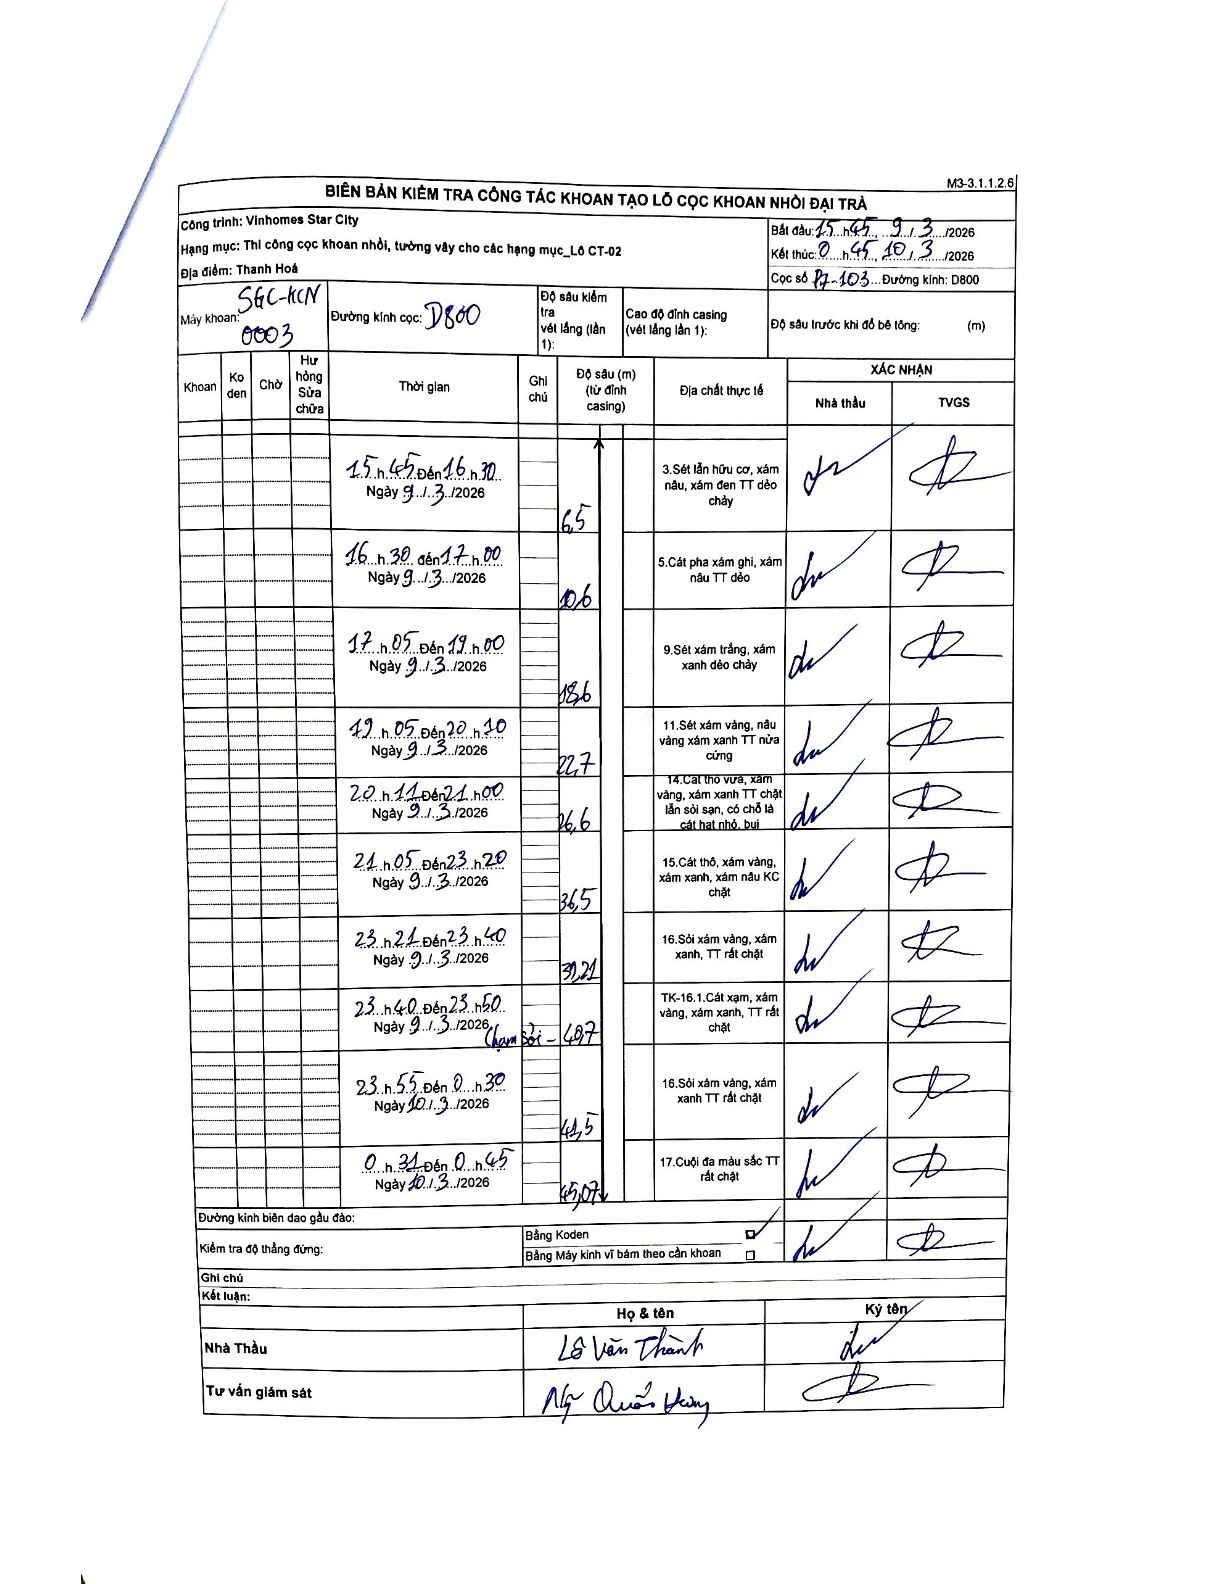 M3-3.1.1.2.6
BIÊN BẢN KIỂM TRA CÔNG TÁC KHOAN TẠO LỖ CỌC KHOAN NHỒI ĐẠI TRÀ
Công trình: Vinhomes Star City
Hạng mục: Thi công cọc khoan nhồi, tường vây cho các hạng mục_Lô CT-02
Địa điểm: Thanh Hoá
Bắt đầu: 15 h 45, 9/3/2026
Kết thúc: 0 h 45, 10/3/2026
Cọc số P7-103 Đường kính: D800
Máy khoan: SGC-KCN 0003
Đường kính cọc: D800
Độ sâu kiểm tra vét lắng (lần 1):
Cao độ đỉnh casing (vét lắng lần 1):
Độ sâu trước khi đổ bê tông: (m)
Khoan
Ko den
Chờ
Hư hỏng Sửa chữa
Thời gian
Ghi chú
Độ sâu (m) (từ đỉnh casing)
Địa chất thực tế
XÁC NHẬN
Nhà thầu
TVGS
15 h 45 Đến 16 h 30
Ngày 9/3/2026
6,5
3.Sét lẫn hữu cơ, xám nâu, xám đen TT dẻo chảy
16 h 30 đến 17 h 00
Ngày 9/3/2026
10,6
5.Cát pha xám ghi, xám nâu TT dẻo
17 h 05 Đến 19 h 00
Ngày 9/3/2026
18,6
9.Sét xám trắng, xám xanh dẻo chảy
19 h 05 Đến 20 h 10
Ngày 9/3/2026
22,7
11.Sét xám vàng, nâu vàng xám xanh TT nửa cứng
20 h 11 Đến 21 h 00
Ngày 9/3/2026
26,6
14.Cát thô vừa, xám vàng, xám xanh TT chặt lẫn sỏi sạn, có chỗ là cát hạt nhỏ, bụi
21 h 05 Đến 23 h 20
Ngày 9/3/2026
36,5
15.Cát thô, xám vàng, xám xanh, xám nâu KC chặt
23 h 21 Đến 23 h 40
Ngày 9/3/2026
39,21
16.Sỏi xám vàng, xám xanh, TT rất chặt
23 h 40 Đến 23 h 50
Ngày 9/3/2026
Chạm Sỏi - 40,7
TK-16.1.Cát xạm, xám vàng, xám xanh, TT rất chặt
23 h 55 Đến 0 h 30
Ngày 10/3/2026
41,5
16.Sỏi xám vàng, xám xanh TT rất chặt
0 h 31 Đến 0 h 45
Ngày 10/3/2026
45,07
17.Cuội đa màu sắc TT rất chặt
Đường kính biên dao gầu đào:
Kiểm tra độ thẳng đứng:
Bằng Koden
Bằng Máy kinh vĩ bám theo cần khoan
Ghi chú
Kết luận:
Họ & tên
Ký tên
Nhà Thầu
Lê Văn Thành
Tư vấn giám sát
Quốc